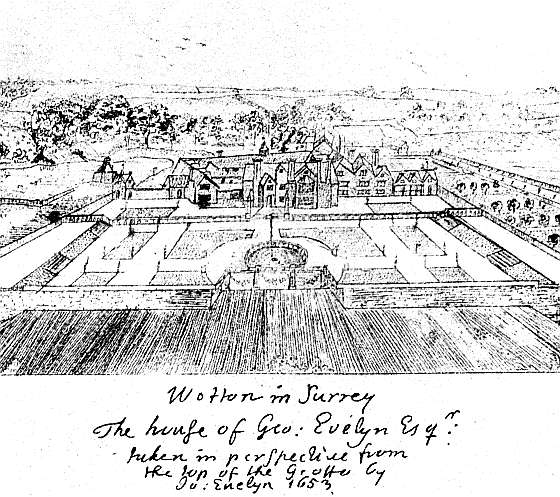 Wotton in Surrey
The house of Geo: Evelyn Esqr:
taken in perspective from
the top of the Grotto by
Jo: Evelyn 1653.